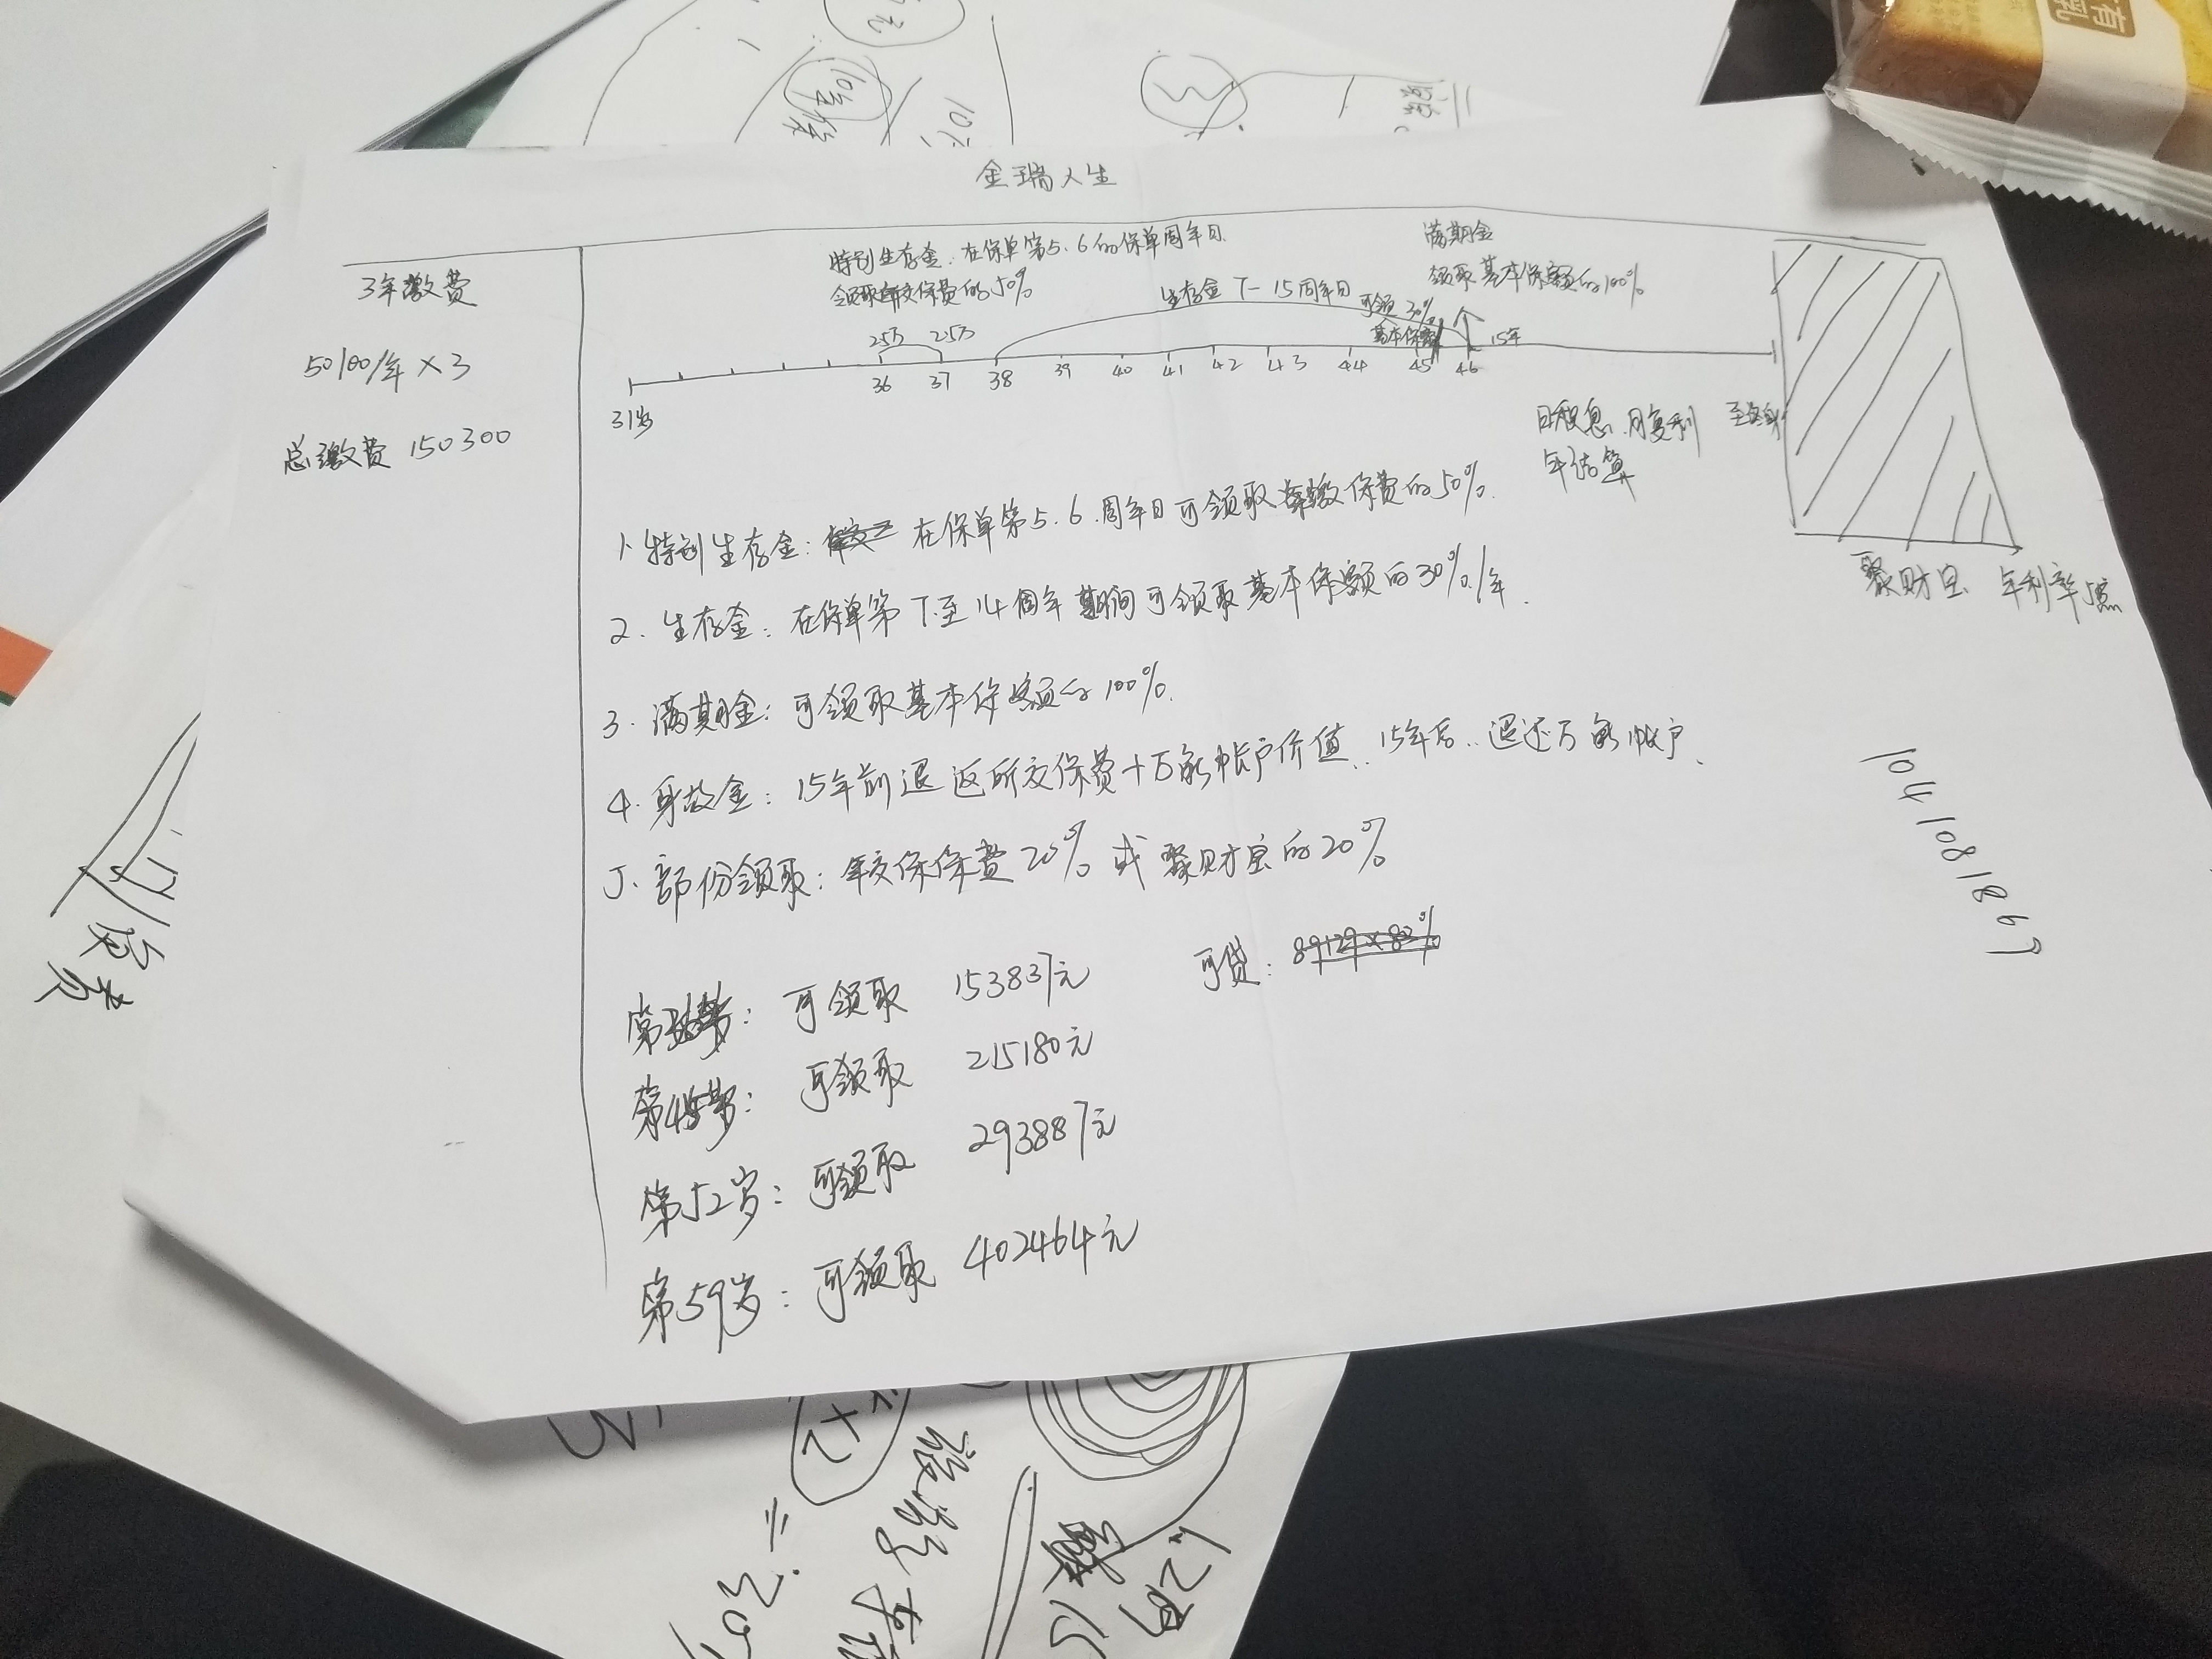 金瑞人生
3年缴费
50100/年×3
总缴费 150300
特别生存金:在保单第5.6的保单周年日
领取年交保费的50%
生存金 7-15周年日
可领30%
基本保额
满期金
领取基本保额的100%
2.5万 2.5万
15年
31岁 36 37 38 39 40 41 42 43 44 45 46
日积息.月复利
年结算
至终身
聚财宝 年利率5点
1.特别生存金:在保单第5.6.周年日可领取年缴保费的50%.
2.生存金:在保单第7至14周年期间可领取基本保额的30%/年.
3.满期金:可领取基本保额的100%.
4.身故金:15年前退返所交保费+万能帐户价值..15年后..退还万能帐户.
5.部份领取:年交保保费20%或聚财宝的20%
可领取 153837元
可贷:
可领取 215180元
第52岁:可领取 293887元
第59岁:可领取 402464元
1041081867
10年
10万
3
有
乳